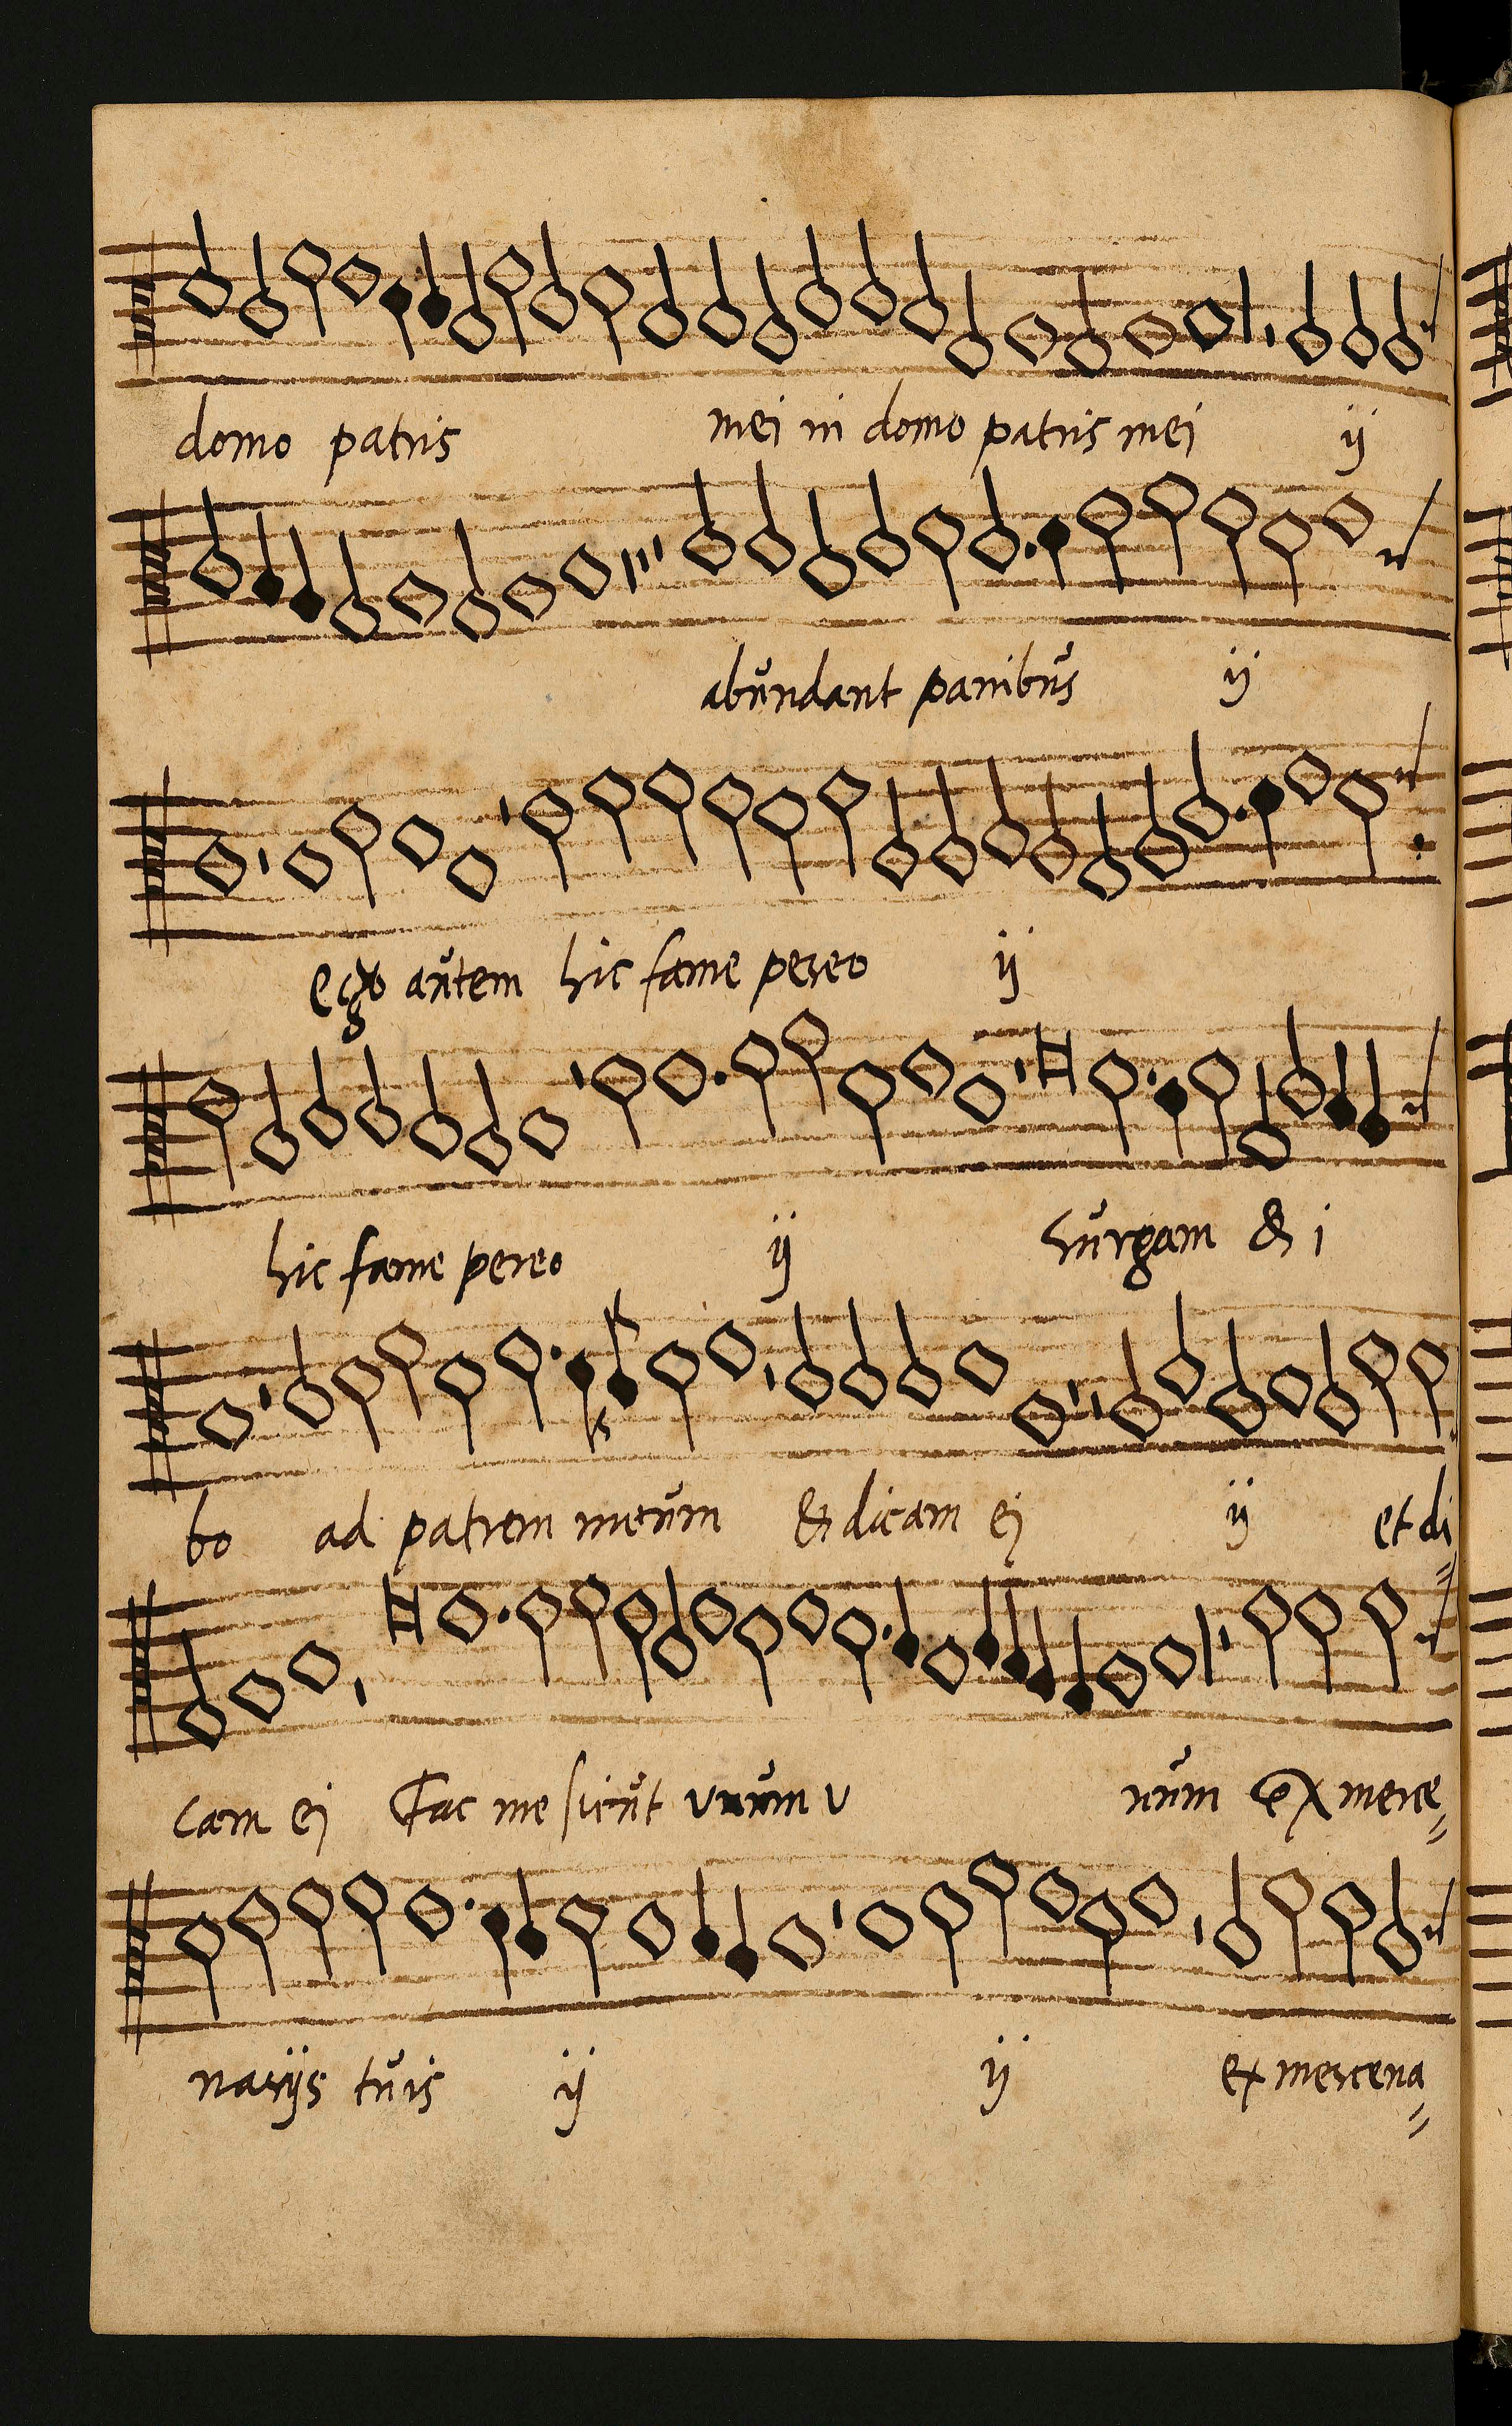 domo patris mei in domo patris mei ij
abundant panibus ij
ego autem hic fame pereo ij
hic fame pereo ij surgam & i
bo ad patrem meum Et dicam ei ij et di=
cam ei Fac me sicut unum u num ex merce=
narijs tuis ij ij ex mercena=